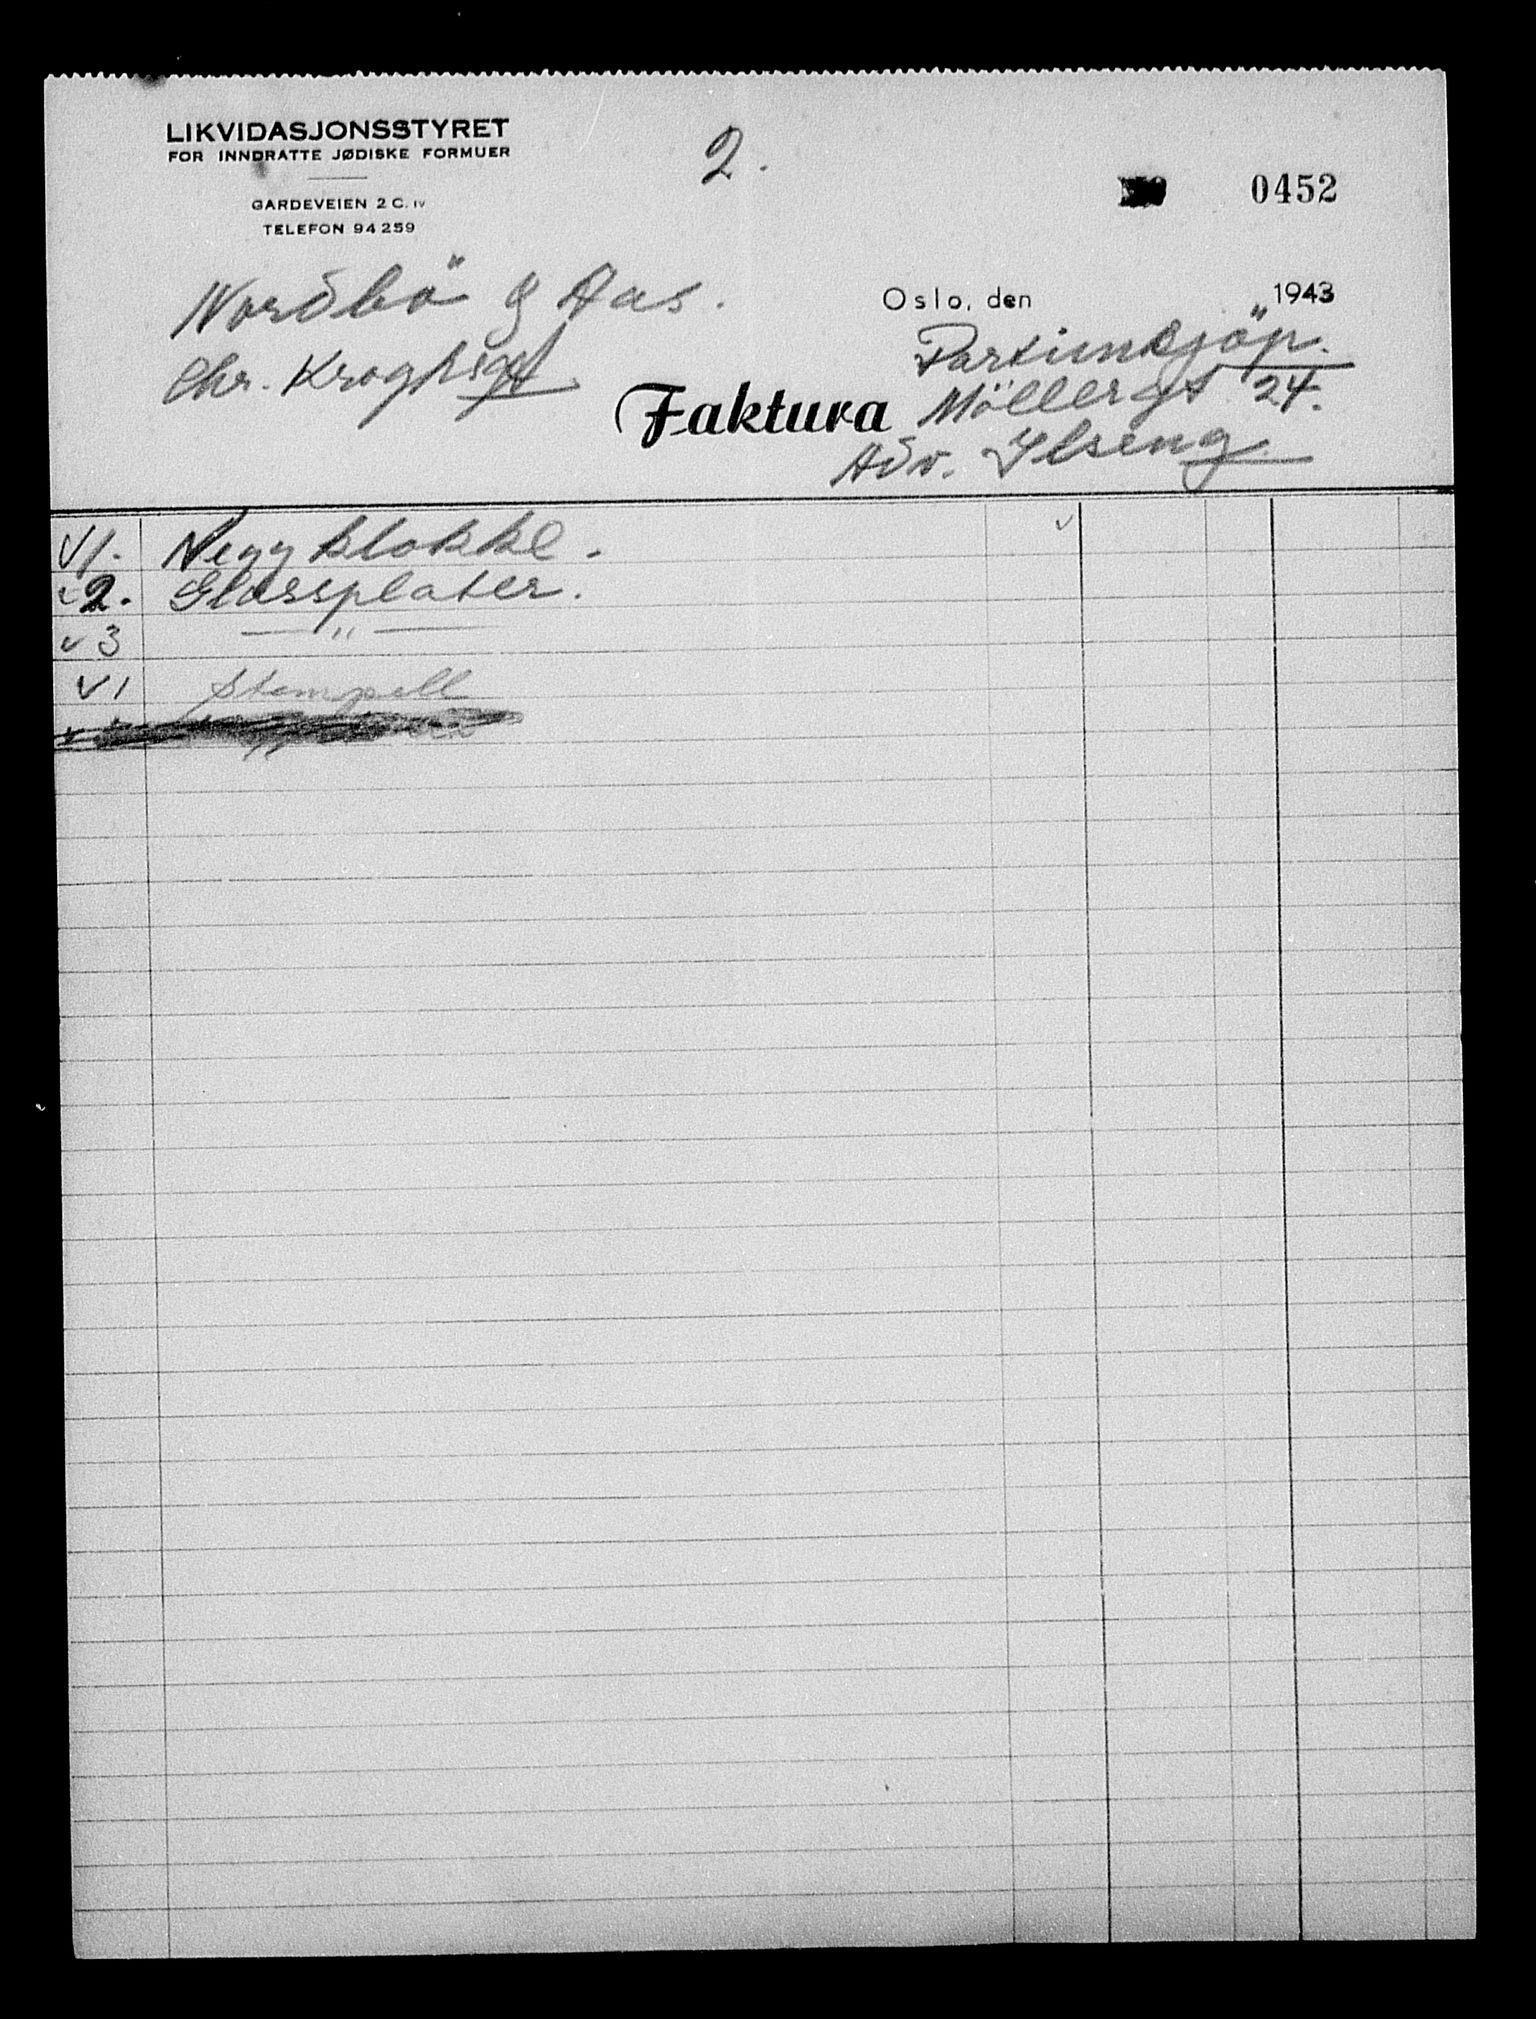 LIKVIDASJONSSTYRET
FOR INNDRATTE JØDISKE FORMUER
GARDEVEIEN 2 C. IV
TELEFON 94259
2.
0452
Nordbö & Aas.
Chr. Kroghsgt
Oslo, den 1943
Partiinkjöp.
Möllergt 24.
Faktura
Adv. Ilseng
√1. Veggklokke.
√2. Glassplater.
√3 — " —
√1 Stempell